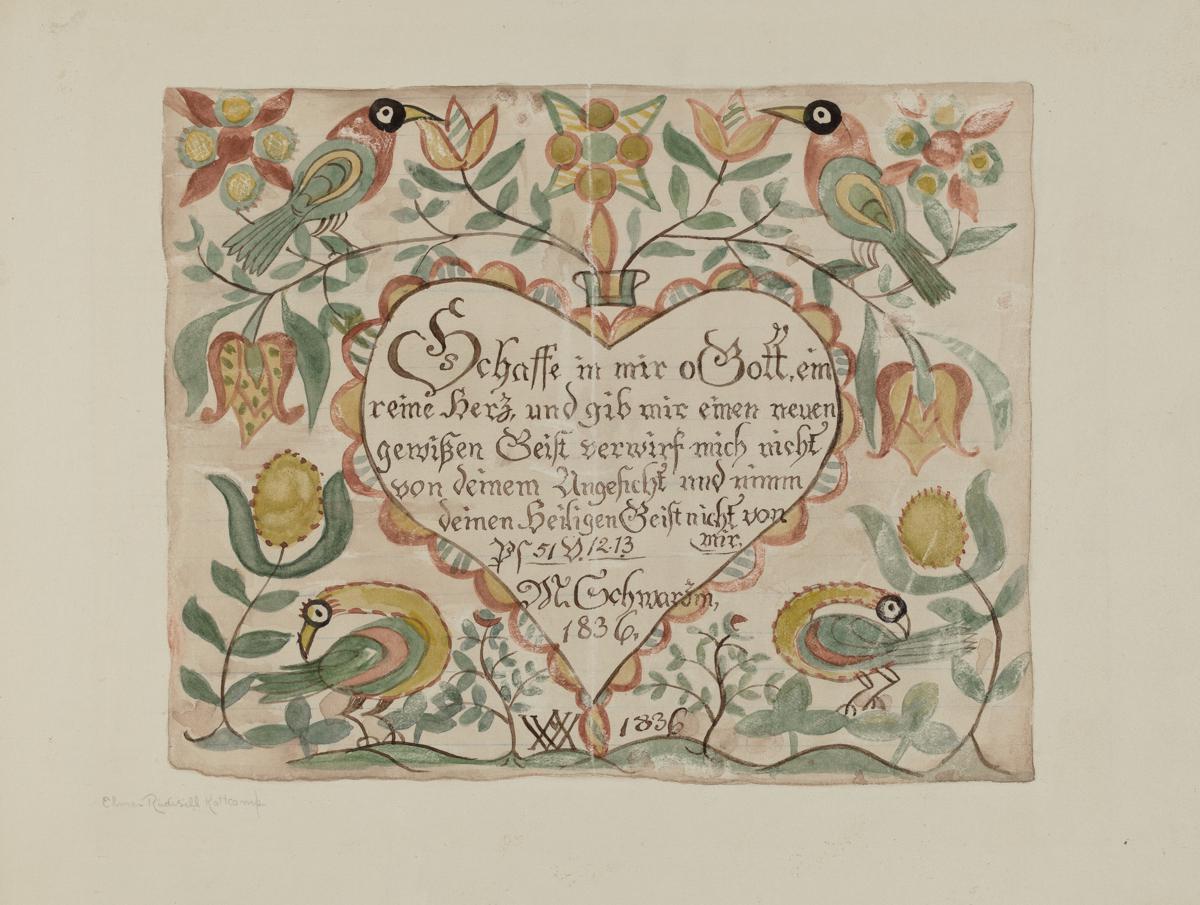 Schaffe in mir o Gott, ein
reine Herz, und gib mir einen neuen
gewißen Geist verwirf mich nicht
von deinem Angesicht und nimm
deinen Heiligen Geist nicht von
Ps 51 V. 12-13 mir.
M. Schwarzin,
1836,
1836
Elmer Rudisill Kottcamp